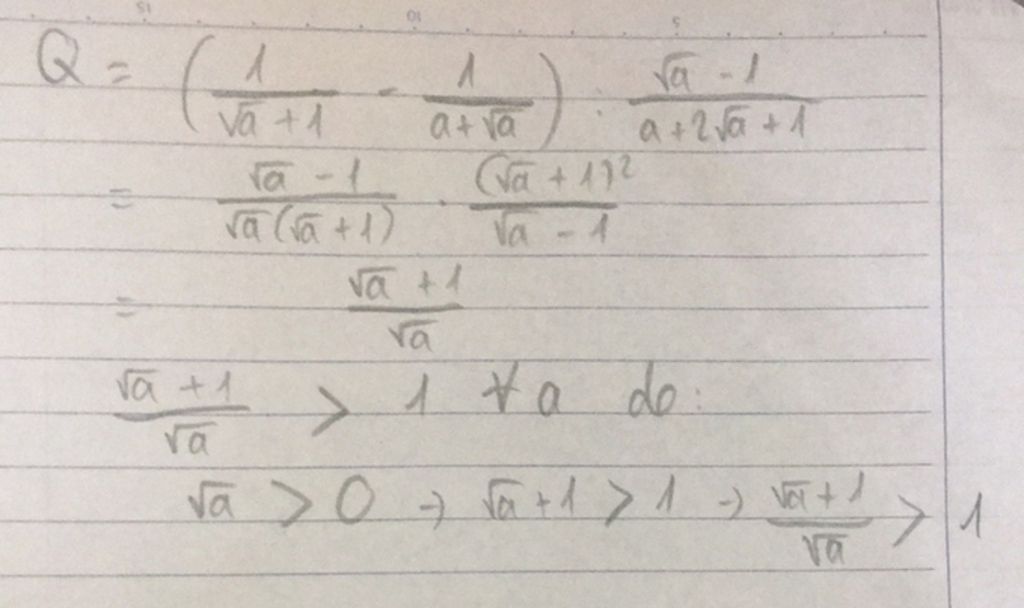 Q = ( 1/(√a + 1) - 1/(a + √a) ) : (√a - 1)/(a + 2√a + 1)
= (√a - 1)/(√a(√a + 1)) · (√a + 1)²/(√a - 1)
= (√a + 1)/√a
(√a + 1)/√a > 1 ∀a do:
√a > 0 → √a + 1 > 1 → (√a + 1)/√a > 1